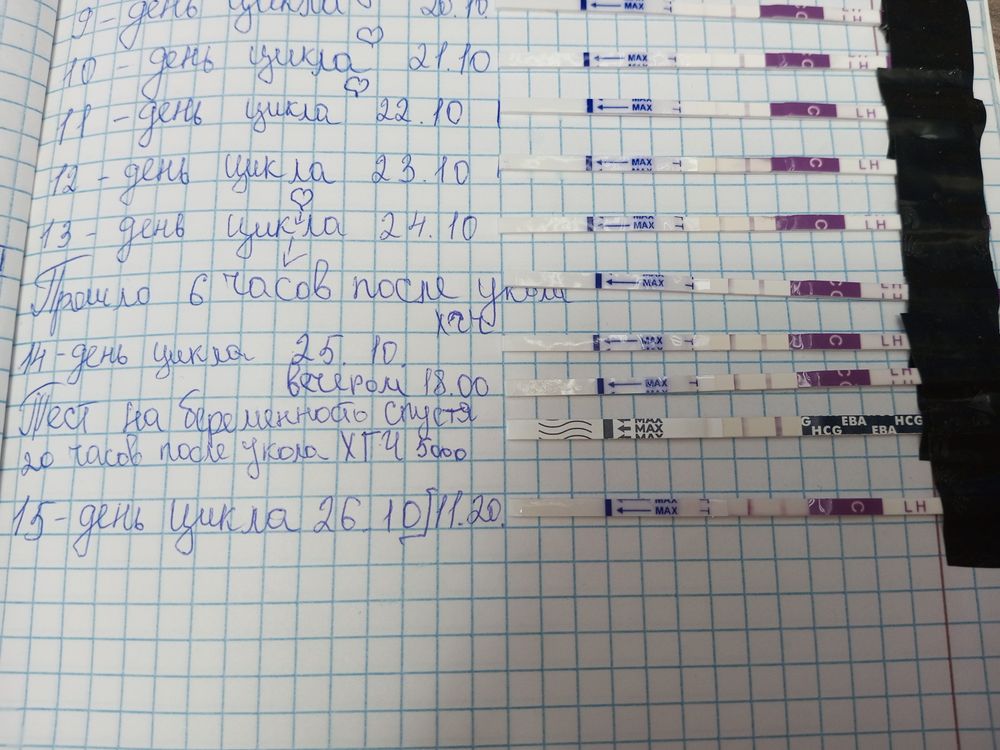 9-день цикла 20.10.
MAX LH
10-день цикла 21.10
MAX T C LH
11-день цикла 22.10
MAX MAX T C LH
12-день цикла 23.10
MAX MAX T C LH
13-день цикла 24.10
MAX MAX T C LH
Прошло 6 часов после укола
ХГЧ
MAX MAX T C LH
14-день цикла 25.10.
MAX MAX T C LH
вечером 18.00
MAX T C LH
Тест на беременность спустя
MAX MAX MAX G HCG EBA EBA HCG
20 часов после укола ХГЧ 5000
15-день цикла 26.10 11.20.
MAX MAX T C LH